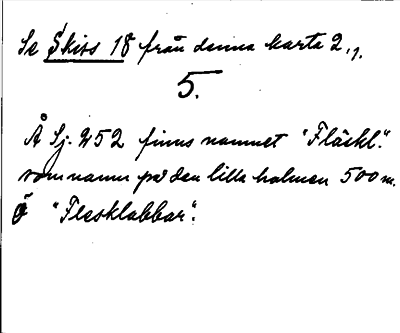 Se Skiss 18 från denna karta 2,1.
5.
Å Sj. 252 finns namnet "Fläskl."
som namn på den lilla holmen 500 m.
Ö "Flesklabbar".